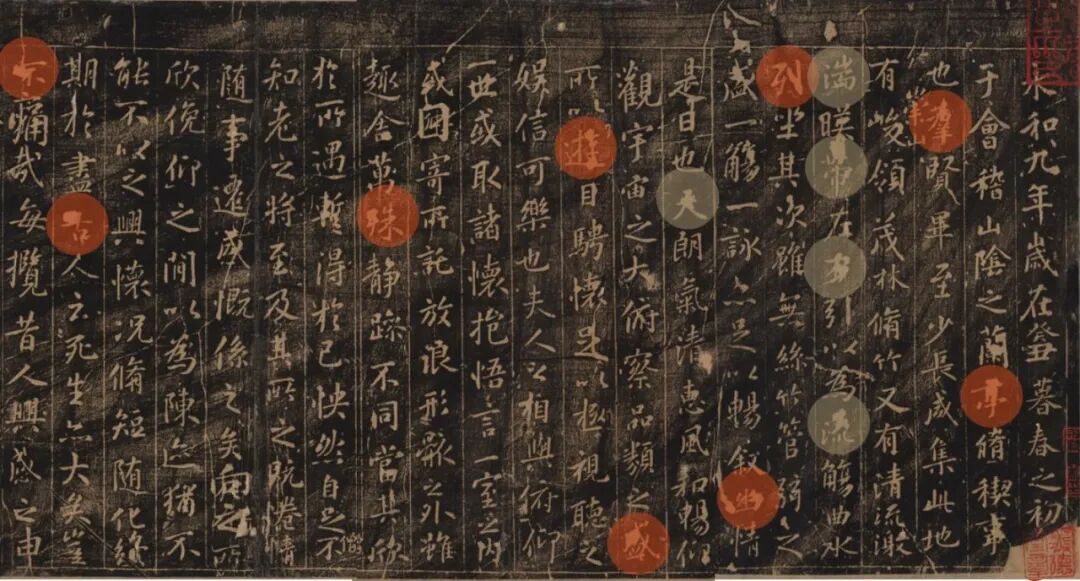 永和九年歲在癸丑暮春之初
于會稽山陰之蘭亭脩稧事
也羣賢畢至少長咸集此地
崇山
有峻領茂林脩竹又有清流激
湍暎帶左右引以為流觴曲水
列坐其次雖無絲竹管弦之
盛一觴一詠亦足以暢敘幽情
是日也天朗氣清惠風和暢仰
觀宇宙之大俯察品類之盛
所以遊目騁懷足以極視聽之
娛信可樂也夫人之相與俯仰
一世或取諸懷抱悟言一室之內
或因寄所託放浪形骸之外雖
趣舍萬殊靜躁不同當其欣
於所遇暫得於己怏然自足不
僧
知老之將至及其所之既惓情
隨事遷感慨係之矣向之所
欣俛仰之間以為陳迹猶不
能不以之興懷況脩短隨化終
期於盡古人云死生亦大矣豈
不痛哉每攬昔人興感之由